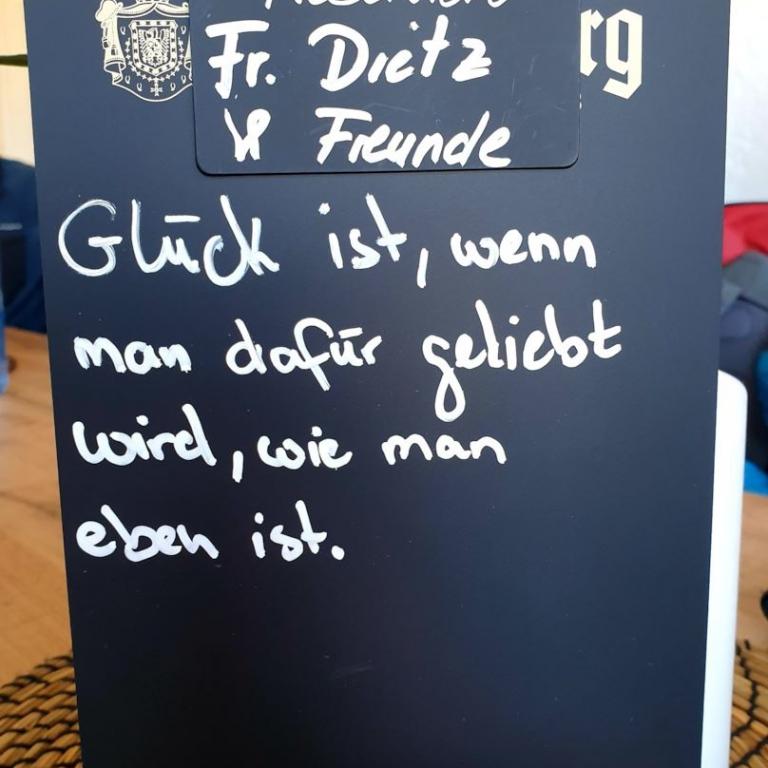 Fr. Dietz
& Freunde
rg
Glück ist, wenn
man dafür geliebt
wird, wie man
eben ist.